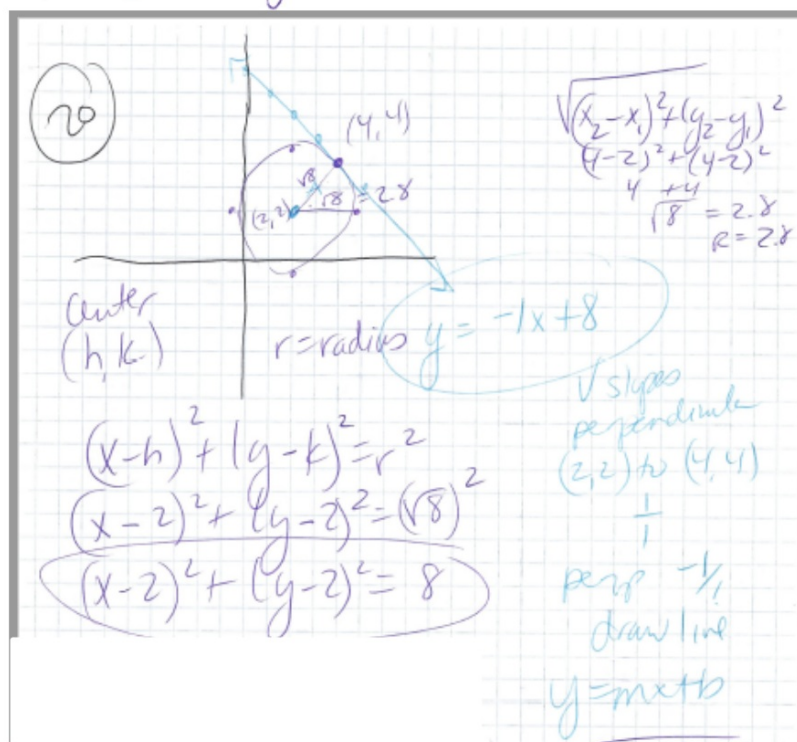 20
(4,4)
√8
(2,2) √8 = 2.8
√(x₂-x₁)²+(y₂-y₁)²
(4-2)²+(4-2)²
4 +4
√8 = 2.8
R=2.8
center
(h,k)
r=radius
y = -1x+8
(x-h)²+(y-k)²=r²
(x-2)²+(y-2)²=(√8)²
(x-2)²+(y-2)²= 8
√ slopes
perpendicular
(2,2) to (4,4)
1/1
perp -1/1
draw line
y=mx+b